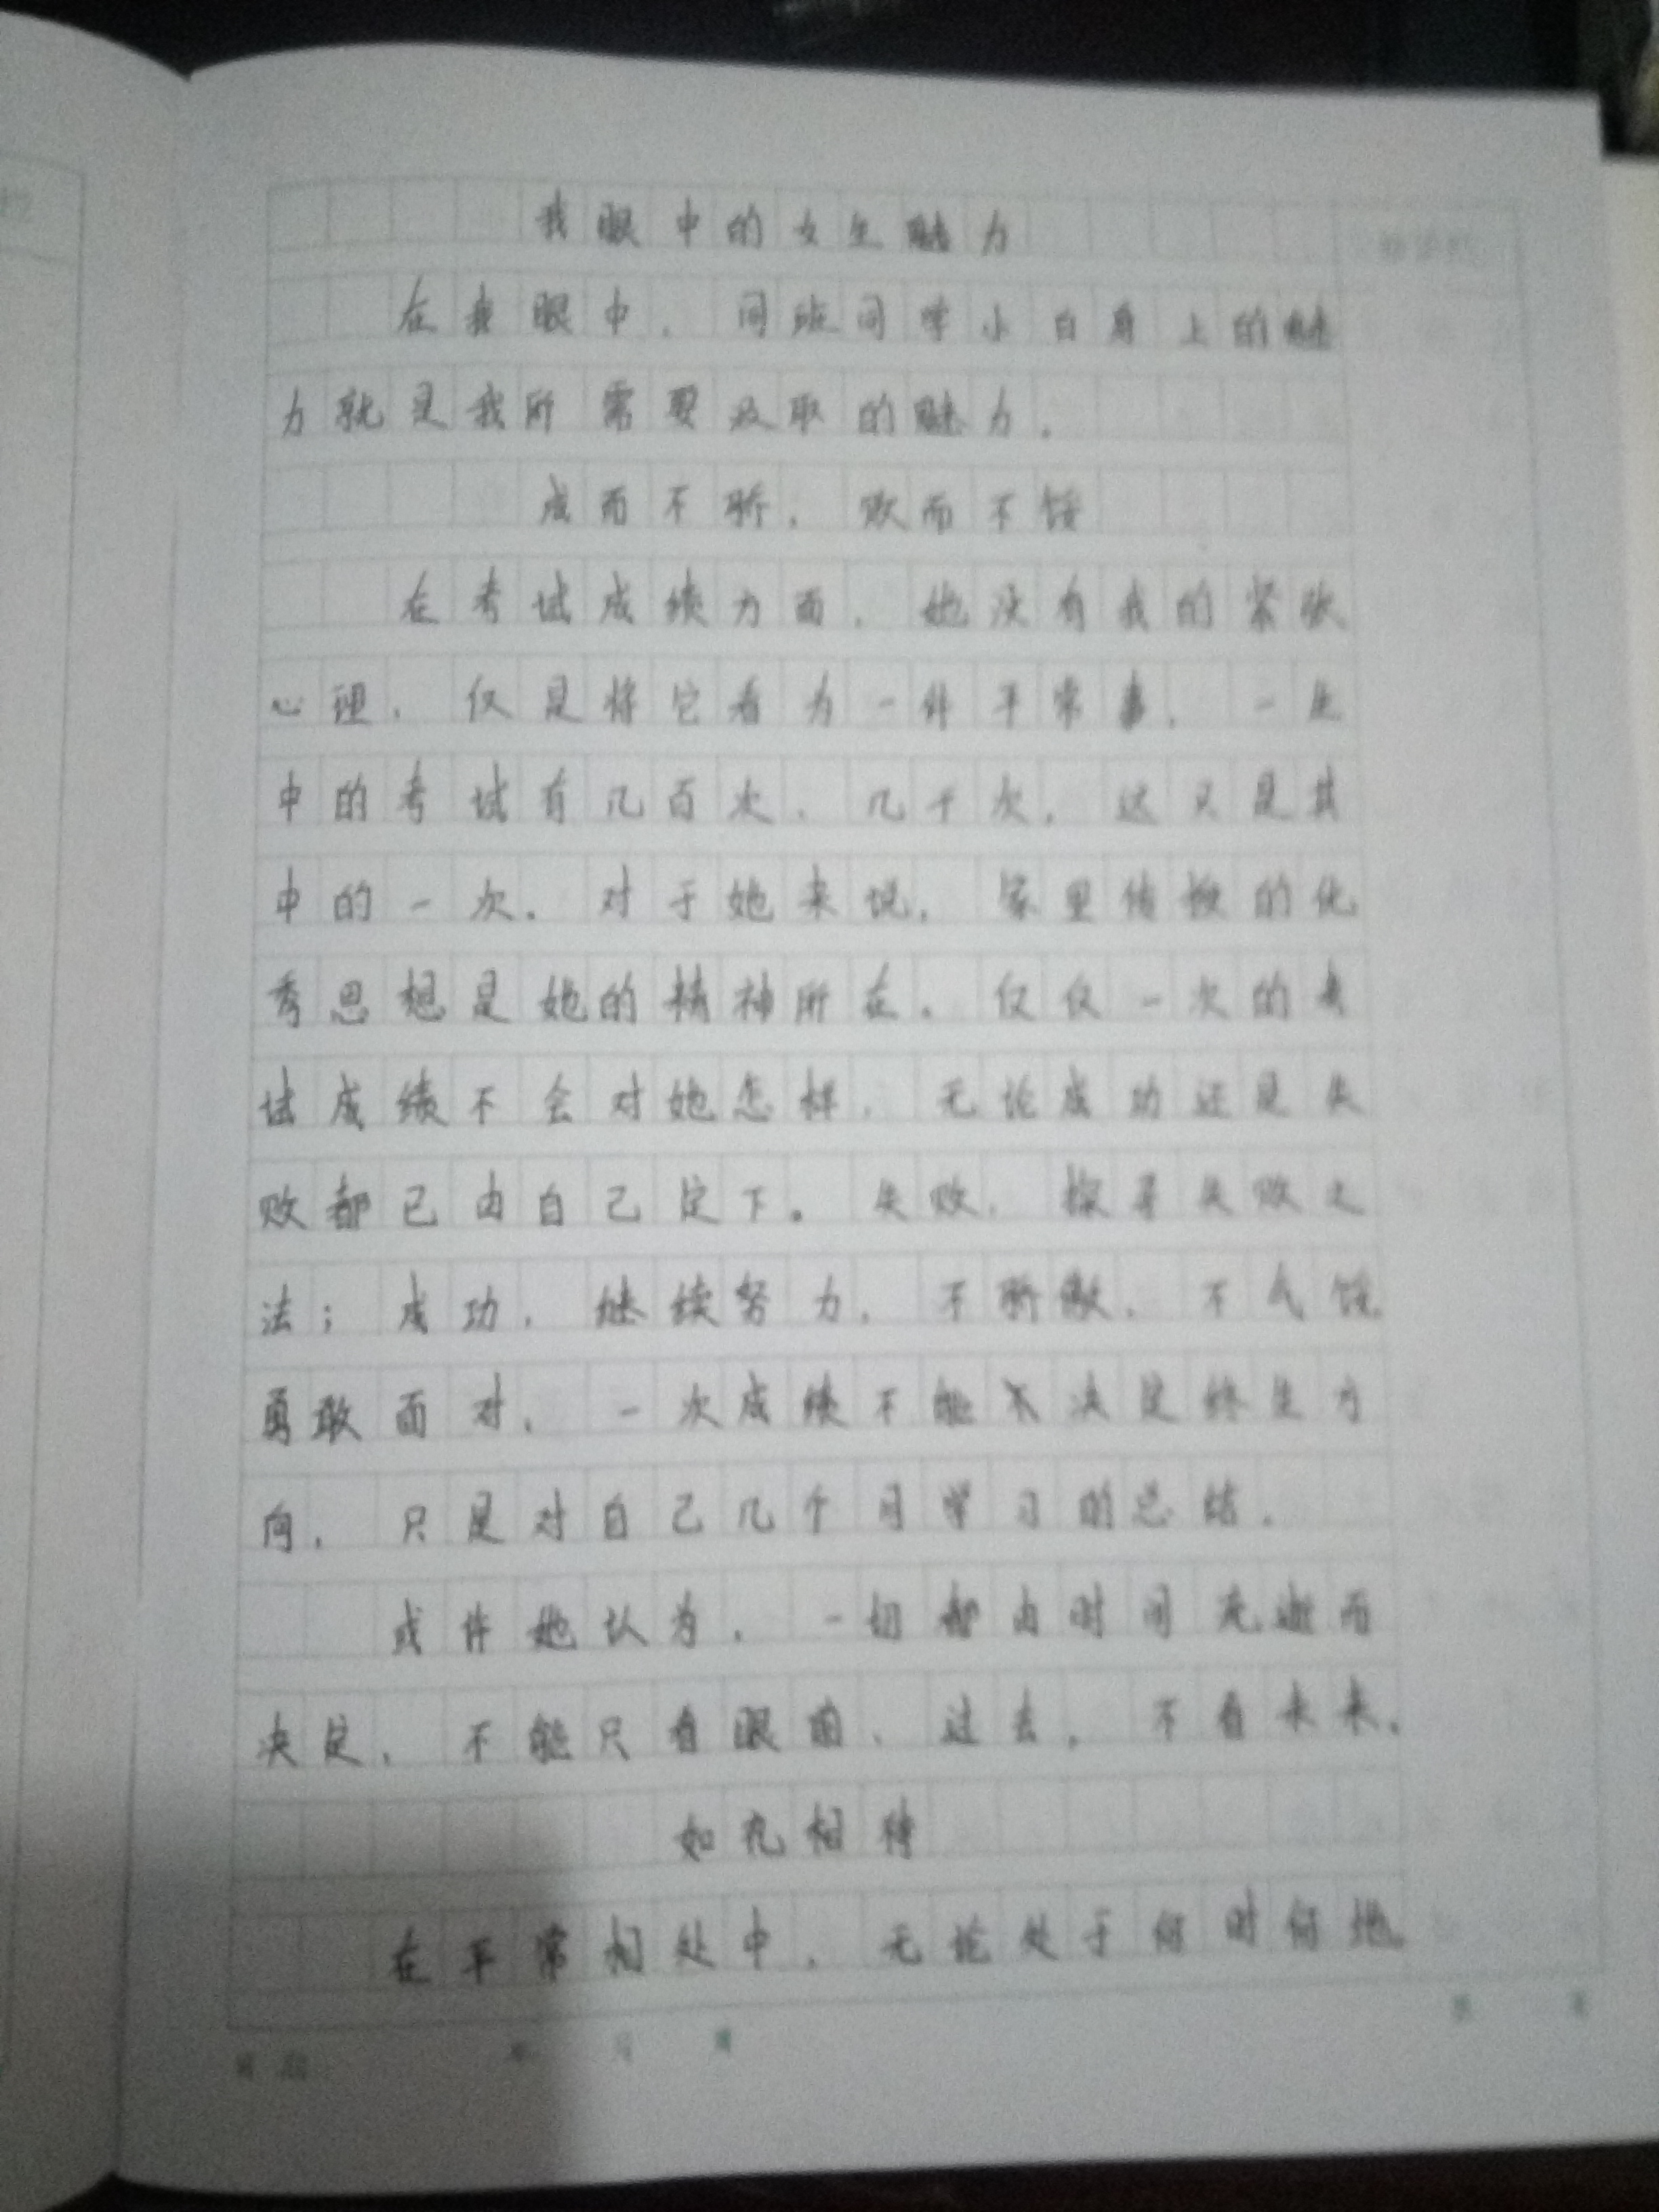 我眼中的女生魅力
在我眼中,同班同学小白身上的魅
力就是我所需要汲取的魅力。
成而不骄,败而不馁
在考试成绩方面,她没有我的紧张
心理,仅是将它看为一件平常事,一生
中的考试有几百次、几千次,这只是其
中的一次。对于她来说,家里传授的优
秀思想是她的精神所在。仅仅一次的考
试成绩不会对她怎样,无论成功还是失
败都已由自己定下。失败,探寻失败之
法;成功,继续努力,不骄傲,不气馁
勇敢面对,一次成绩不能决定终生方
向,只是对自己几个月学习的总结。
或许她认为,一切都由时间流逝而
决定,不能只看眼前、过去,不看未来。
如 相待
在平常相处中,无论处于何时何地。
日期 年 月
第 页